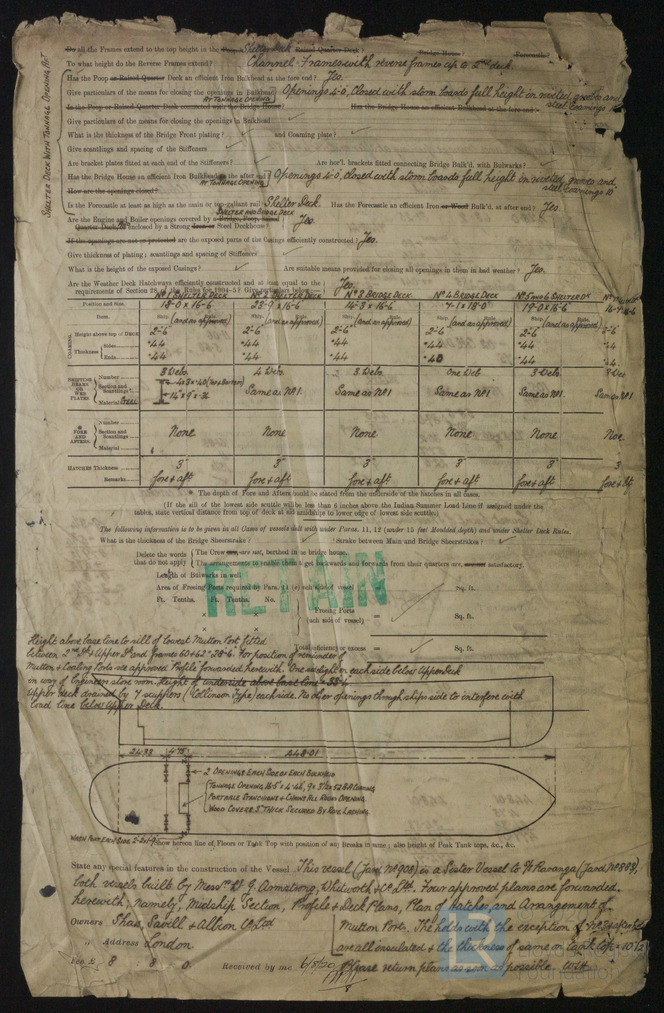 Do all the Frames extend to the top height in the Poop? Shelter Deck Raised Quarter Deck? Bridge House? Forecastle?
To what height do the Reverse Frames extend? Channel Frames with reverse frames up to 2nd deck
Has the Poop or Raised Quarter Deck an efficient Iron Bulkhead at the fore end? Yes.
Give particulars of the means for closing the openings in Bulkhead AT TONNAGE OPENING Openings 4-0, Closed with storm boards full height in riveted grooves and steel coamings
In the Poop or Raised Quarter Deck Has the Bridge House an efficient Bulkhead at the fore end
Give particulars of the means for closing the openings in Bulkhead
What is the thickness of the Bridge Front plating? and Coaming plate?
Give scantlings and spacing of the Stiffeners
Are bracket plates fitted at each end of the Stiffeners? Are hor'l. brackets fitted connecting Bridge Bulk'd. with Bulwarks?
Has the Bridge House an efficient Iron Bulkhead at the after end AT TONNAGE OPENING Openings 4-0, closed with storm boards full height in riveted grooves and steel coamings
How are the openings closed?
SHELTER DECK WITH TONNAGE OPENING AFT
Is the Forecastle at least as high as the main or top-gallant rail? Shelter Deck. Has the Forecastle an efficient Iron or Wood Bulk'd. at after end? Yes.
Are the Engine and Boiler openings covered by a Bridge, Poop, SHELTER AND BRIDGE DECK
Quarter Deck, enclosed by a Strong Iron or Steel Deckhouse? Yes.
If the openings are not so protected are the exposed parts of the Casings efficiently constructed? Yes.
Give thickness of plating; scantlings and spacing of Stiffeners
What is the height of the exposed Casings? Are suitable means provided for closing all openings in them in bad weather? Yes.
Are the Weather Deck Hatchways efficiently constructed and at least equal to the
requirements of Section 28 of the Rules for 1904-5? Give particulars below:— Yes.
Position and Size. No 1 SHELTER DECK 18-0 x 16-6 No 2 SHELTER DECK 28-9 x 16-6 No 3 BRIDGE DECK 14-3 x 16-6 No 4 BRIDGE DECK 7-1 x 18-0 No 5 AND 6 SHELTER DK 19-0 x 16-6
Item. Ship. (and as approved) Rule. Ship. (and as approved) Rule. Ship. (and as approved) Rule. Ship. (and as approved) Rule. Ship. (and as approved) Rule.
COAMING. Height above top of DECK 2-6 2-6 2-6 2-6 2-6 2-6
Thickness Sides .44 .44 .44 .44 .44 .44
Ends .44 .44 .44 .40 .44 .44
SHIFTING BEAMS OR WEB PLATES. Number 3 Deb. 4 Deb. 3 Deb. One Deb 3 Deb.
Section and Scantlings Same as No 1. Same as No 1 Same as No 1 Same as No 1. Same as No 1
Material STEEL
FORE AND AFTERS. Number
Section and Scantlings None None None None None
Material
HATCHES Thickness 3" 3" 3" 3" 3" 3
Remarks fore & aft fore & aft fore & aft fore & aft fore & aft fore & aft
* The depth of Fore and Afters should be stated from the underside of the hatches in all cases.
(If the sill of the lowest side scuttle will be less than 6 inches above the Indian Summer Load Line if assigned under the
tables, state vertical distance from top of deck at side amidships to lower edge of lowest side scuttle.)
The following information is to be given in all Cases of vessels dealt with under Paras. 11, 12 (under 15 feet Moulded depth) and under Shelter Deck Rules.
What is the thickness of the Bridge Sheerstrake? Strake between Main and Bridge Sheerstrakes?
Delete the words that do not apply The Crew are, are not, berthed in the bridge house.
The arrangements to enable them to get backwards and forwards from their quarters are, are not satisfactory.
Length of Bulwarks in well
Area of Freeing Ports required by Para. 11 (each side of vessel) Sq. ft.
Ft. Tenths. Ft. Tenths. No.
RETAIN
Freeing Ports (each side of vessel) = Sq. ft.
× ×
Total deficiency or excess = Sq. ft.
Height above base line to sill of lowest Mutton Port fitted
between 2nd Dk & Upper Dk and frames 60 & 62 = 28-6. For position of remainder of
Mutton & Coaling Ports see approved Profile forwarded herewith. One sidelight on each side below Upper Deck
in way of Engineers store room height of underside above base line = 33-6
Upper deck drained by 7 scuppers (Tollinson Type) each side. No other openings through ships side to interfere with
load line below Upper Deck.
24.98 4.75 448.01
2 OPENINGS EACH SIDE OF EACH BULKHEAD
PORTABLE STANCHIONS & CHAINS ALL ROUND OPENING.
WOOD COVERS 3" THICK SECURED BY ROPE LASHING
Show hereon line of Floors or Tank Top with position of any Breaks in same; also height of Peak Tank tops, &c., &c.
State any special features in the construction of the Vessel This vessel (Yard No 908) is a Sister Vessel to S/S Raranga (Yard No 883),
both vessels built by Messrs W. G. Armstrong, Whitworth & Co. Ltd. Four approved plans are forwarded
herewith, namely, Midship Section, Profile & Deck Plans, Plan of Hatches, and Arrangement of
Mutton Ports. The holds with the exception of
are all insulated & the thickness of same on tank top = 10 1/2
Please return plans as soon as possible
Owners Shaw, Savill & Albion Co Ltd
" Address London.
Fee £ 8 8 0. Received by me 6/8/20
Foundation